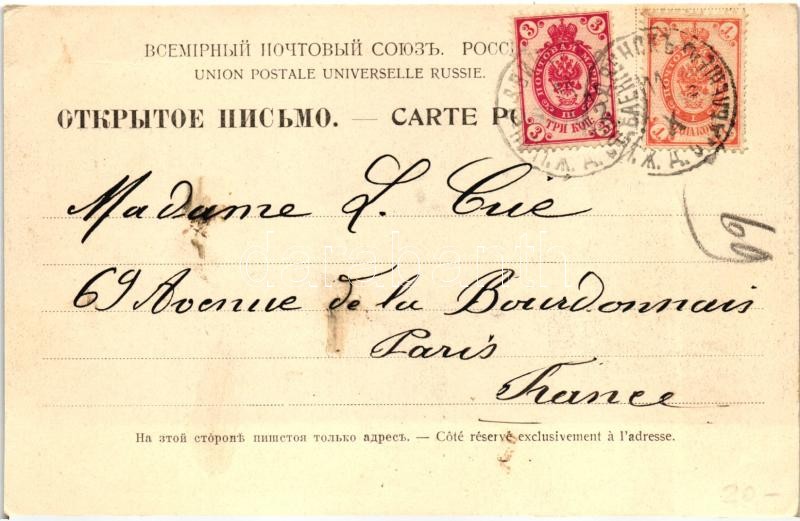 ВСЕМІРНЫЙ ПОЧТОВЫЙ СОЮЗЪ. РОССІ
UNION POSTALE UNIVERSELLE RUSSIE.
ОТКРЫТОЕ ПИСЬМО. — CARTE PO
3 3
ПОЧТОВАЯ МАРКА
III
ТРИ КОП.
3 3
1
I
Madame L. Crié
69 Avenue de la Bourdonnais
Paris
France
69
На этой сторонѣ пишется только адресъ. — Côté réservé exclusivement à l'adresse.
darabanth
20-